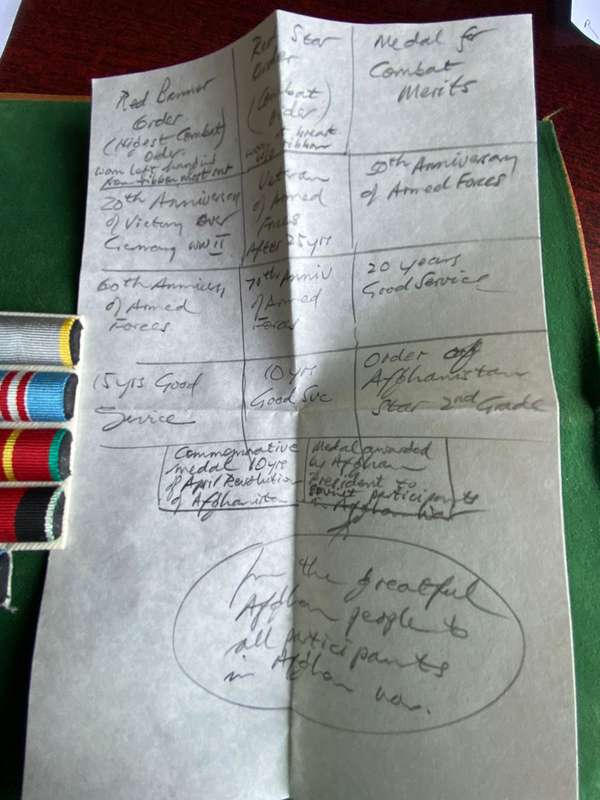 Red Banner
Order
(Highest Combat)
Order
worn left
Red Star
Order
(Combat
Order)
Medal for
Combat
Merits
20th Anniversary
of Victory over
Germany WWII
Veteran
of Armed
Forces
After 25 yrs
50th Anniversary
of Armed Forces
60th Annivers
of Armed
Forces
70th Anniv
of Armed
Forces
20 years
Good Service
15 yrs Good
Service
10 yrs
Good Svc
Order of
Afghanistan
Star 2nd Grade
Commemorative
medal 10 yrs
of April Revolution
of Afghanistan
Medal awarded
by Afghan
President to
Soviet participants
in Afghan War
from the greatful
Afghan people to
all participants
in Afghan war.